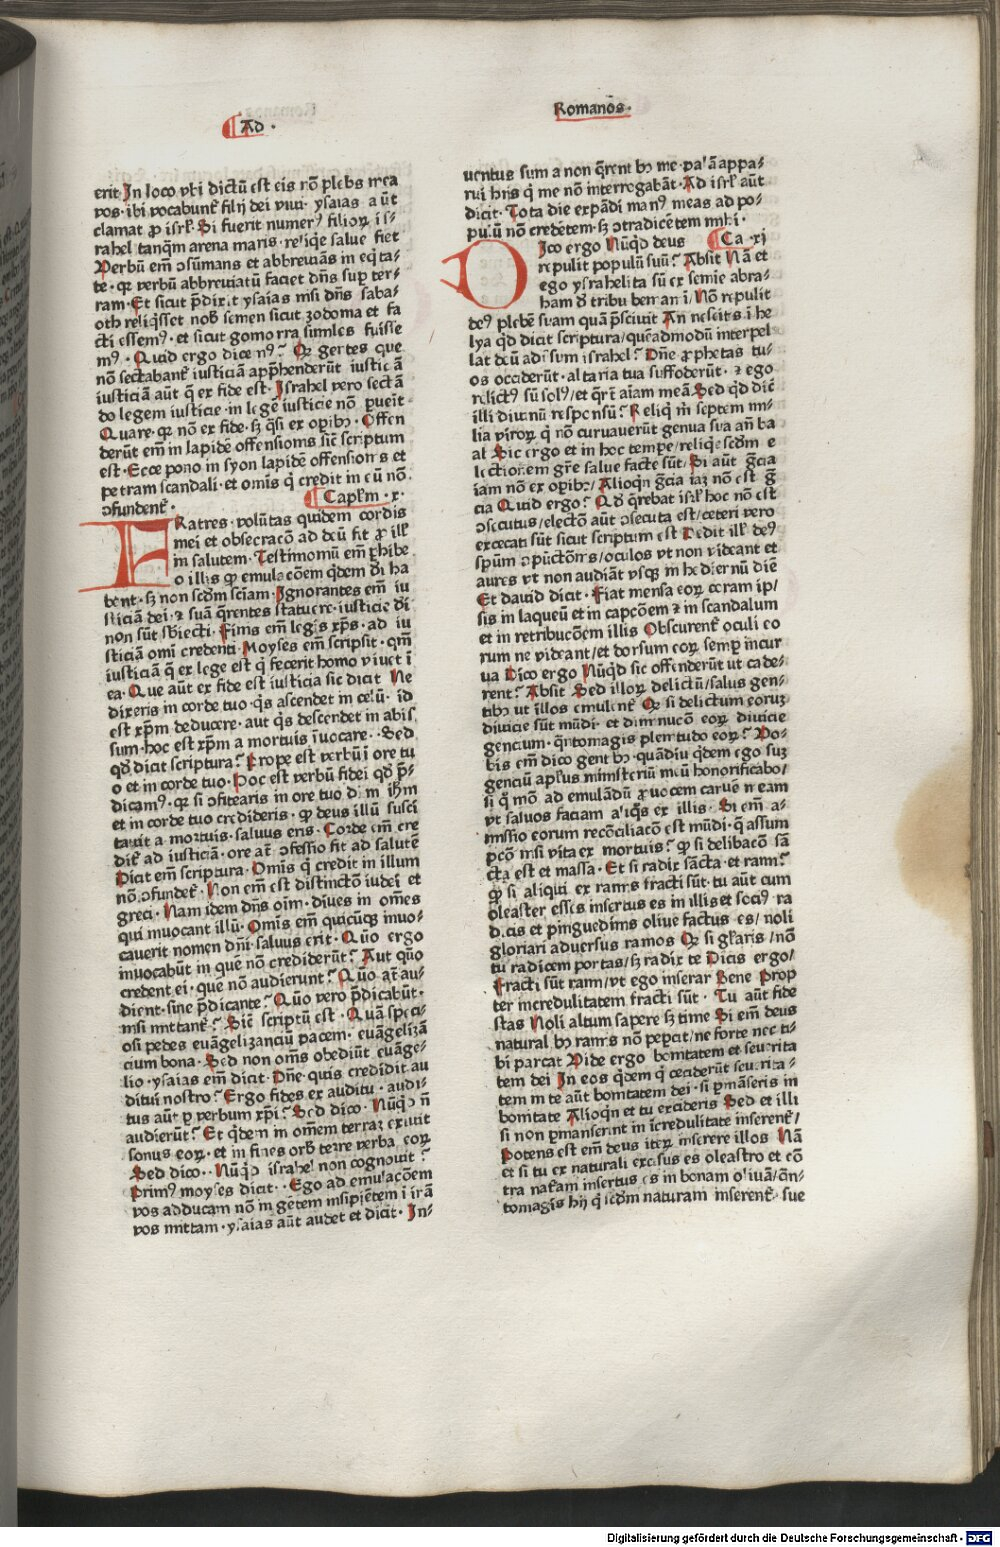 Ad ·
Romanos ·
erit In loco vbi dictū est eis nō plebs mea
vos · ibi vocabunt᷒ filij dei viui · ysaias aūt
clamat ꝓ isrl̄ · Si fuerit numer⁹ filioꝝ is-
rahel tanq̄m arena maris · reliq̄e salue fiet
Verbū em̄ ↄsūmans et abbreviās in eq̄ta-
te · qꝛ verbū abbreviatū faciet dn̄s sup̄ ter-
ram · Et sicut p̄dixit ysaias nisi dn̄s saba-
oth reliq̄sset nob̄ semen sicut zodoma et fa
cti essem⁹ · et sicut gomorra similes fuisse
m⁹ · Quid ergo dicem⁹? Qꝛ gentes que
nō sectabant᷒ iusticiā app̄henderūt iusticiā
iusticiā aūt q̄ ex fide est · Israhel vero sectā
do legem iusticie · in legē iusticie nō puēit ·
Quare · qꝛ nō ex fide · sꝫ q̄si ex opibꝫ · Offen
derūt em̄ in lapidē offensionis sic̄ scriptum
est · Ecce pono in syon lapidē offensionis et
petram scandali · et omīs q̄ credit in eū nō
ↄfundent᷒ · Capl'm · x ·
FRatres · volūtas quidem cordis
mei et obsecracō ad deū fit ꝓ ill'
in salutem · Testimoniū em̄ ꝑhibe
o illis ꝙ emulacōem q̄dem di ha
bent · sꝫ non scdm sciam · Ignorantes em̄ iu
sticiā dei · ⁊ suā q̄rentes statuere · iusticie di
non sūt sbiecti · Finis em̄ legis xp̄s · ad iu
sticiā omī credenti · Moyses em̄ scripsit · qm̄
iusticiā q̄ ex lege est q̄ fecerit homo viuet ī
ea · Que aūt ex fide est iusticia sic dicit Ne
dixeris in corde tuo · q̄s ascendet in celū · id
est xp̄m deducere · aut q̄s descendet in abis
sum · hoc est xp̄m a mortuis īuocare · · Sed
qd̄ dicit scriptura? Prope est verbū ī ore tu
o et in corde tuo · Hoc est verbū fidei qd̄ p̄-
dicam⁹ · qꝛ si ↄfitearis in ore tuo dn̄m ih̄m
et in corde tuo credideris · ꝙ deus illū susci
tauit a mortuis · saluus eris · Corde em̄ cre
dit᷒ ad iusticiā · ore at̄ ↄfessio fit ad salutē
Dicit em̄ scriptura · Omīs q̄ credit in illum
nō ↄfundet᷒ · Non em̄ est distinctō iudei et
greci · Nam idem dn̄s oīm · diues in om̄es
qui inuocant illū · Omīs em̄ quicūqꝫ inuo-
cauerit nomen dn̄i · saluus erit · Quō ergo
inuocabūt in quē nō crediderūt? Aut quō
credent ei · quē nō audierunt? Quō at̄ au-
dient · sine p̄dicante? Quō vero p̄dicabūt ·
nisi mittant᷒? Sic̄ scriptū est · Quā speci-
osi pedes euāgelizanciū pacem · euāgelizā
cium bona · Sed non om̄s obediūt euāge-
lio · ysaias em̄ dicit · Dn̄e quis credidit au
ditui nostro? Ergo fides ex auditu · audi-
tus aūt ꝑ verbum xp̄i? Sed dico · Nūqꝺ n̄
audierūt? Et q̄dem in om̄em terraꝫ exiuit
sonus eoꝝ · et in fines orb̄ terre verba eoꝝ
Sed dico · · Nūqꝺ israhel non cognouit?
Prim⁹ moyses dicit · · Ego ad emulacōem
vos adducam nō in gētem insipiētem ī irā
vos mittam · ysaias aūt audet et dicit · In-
uentus sum a non q̄rentibꝫ me · pal'ā appa-
rui hiis q̄ me nō interrogabāt · Ad isrl̄ aūt
dicit · Tota die expādi man⁹ meas ad po-
pulū nō credētem · sꝫ ↄtradicētem mihi ·
DIco ergo Nūqꝺ deus Ca · xi
repulit populū suū? Absit Nā et
ego ysrahelita sū ex semie abra-
ham d̄ tribu beniam ī / Nō repulit
de⁹ plebē suam quā p̄sciuit An nescits ī he
lya qd̄ dicit scriptura / quēadmodū interpel
lat deū adūsum israhel? Dn̄e ꝓphetas tu-
os occiderūt · altaria tua suffoderūt · ⁊ ego
relict⁹ sū sol⁹ / et q̄rt᷒ aīam meā Sed qd̄ dic̄
illi diuinū responsū? Reliq̄ m̄ septem mi-
lia viroꝝ q̄ nō curuauerūt genua sua an̄ ba
al Sic ergo et in hoc tempe / reliq̄e scdm e
lectionem gr̄e salue facte sūt · Si aūt gr̄cia
iam nō ex opibꝫ / Alioqn̄ gr̄cia iaꝫ nō est gr̄
cia Quid ergo? Qd̄ q̄rebat isrl̄ hoc nō est
ↄsecutus / electō aūt ↄsecuta est / ceteri vero
excecati sūt sicut scriptum est Dedit ill' de⁹
spm̄ ↄpūctōnis / oculos vt non videant et
aures vt non audiāt vsqꝫ in hodiernū diē
Et dauid dicit · Fiat mensa eoꝝ coram ip/
sis in laqueū et in capcōem ⁊ in scandalum
et in retribucōem illis Obscurent᷒ oculi eo
rum ne videant / et dorsum eoꝝ semp̄ incur
ua Dico ergo Nūqd̄ sic offenderūt ut cade-
rent? Absit Sed illoꝝ delictū / salus gen-
tibꝫ ut illos emulent᷒ Qꝛ si delictum eoruꝫ
diuicie sūt mūdi · et diminucō eoꝝ diuicie
gencium · q̄ntomagis plenitudo eoꝝ? Vo-
bis em̄ dico gentibꝫ · quādiu q̄dem ego suꝫ
genciū ap̄lus ministeriū meū honorificabo/
si q̄ mō ad emulādū ꝓuocem carnē meam
vt saluos faciam aliq̄s ex illis · Si em̄ a-
missio eorum recōciliacō est mūdi · q̄ assum
pcō nisi vita ex mortuis? ꝙ si delibacō sā
cta est et massa · Et si radix sācta · et rami?
ꝙ si aliqui ex ramis fracti sūt · tu aūt cum
oleaster esses insertus es in illis et soci⁹ ra
dicis et pinguedinis oliue factus es / noli
gloriari aduersus ramos Qꝛ si gl'aris / nō
tu radicem portas / sꝫ radix te Dicis ergo/
Fracti sūt rami / vt ego inserar Bene Prop
ter incredulitatem fracti sūt · Tu aūt fide
stas Noli altum sapere sꝫ time Si em̄ deus
natural'bꝫ ramis nō pepcit / ne forte nec ti-
bi parcat Vide ergo bonitatem et seuerita
tem dei In eos q̄dem q̄ ceciderūt seuerita-
tem in te aūt bonitatem dei · si ꝑmāseris in
bonitate Alioqn̄ et tu excideris Sed et illi
si non ꝑmanserint in īcredulitate inserent᷒/
Potens est em̄ deus iteꝝ inserere illos Nā
et si tu ex naturali excisus es oleastro et cō
tra nat᷒am insertus es in bonam oliuā / q̄n-
tomagis hij q̄ scdm naturam inserent᷒ · sue
Digitalisierung gefördert durch die Deutsche Forschungsgemeinschaft - DFG